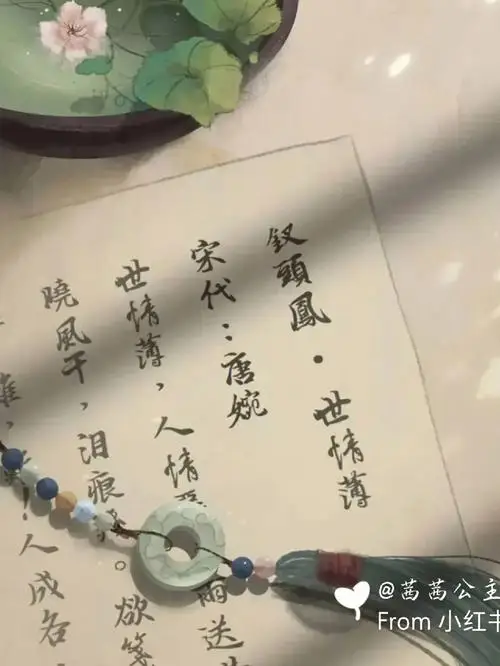 釵頭鳳·世情薄
宋代：唐婉
世情薄，人情 雨送
曉風干，泪痕 。欲箋
！人成各，
@茜茜公主
From 小红书